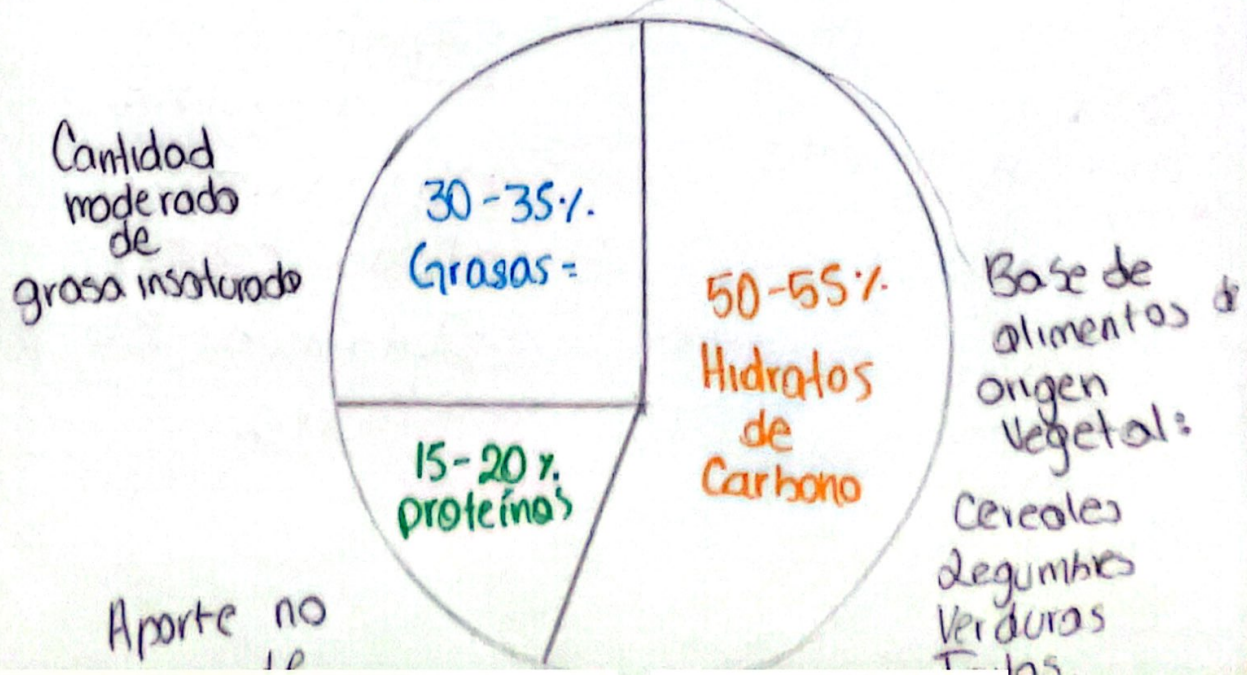 Cantidad
moderado
de
grasa insaturado
30-35%.
Grasas =
50-55%
Hidratos
de
Carbono
15-20%.
proteínas
Base de
alimentos de
origen
vegetal:
Cereales
Legumbres
Verduras
Aporte no